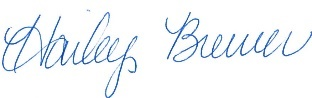 Hailey Bremer